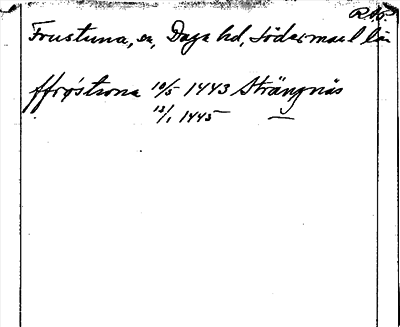 Frustuna, sn, Daga hd, Södermanl län
ffrøstona 10/5 1443 Strängnäs
13/1 1445 —